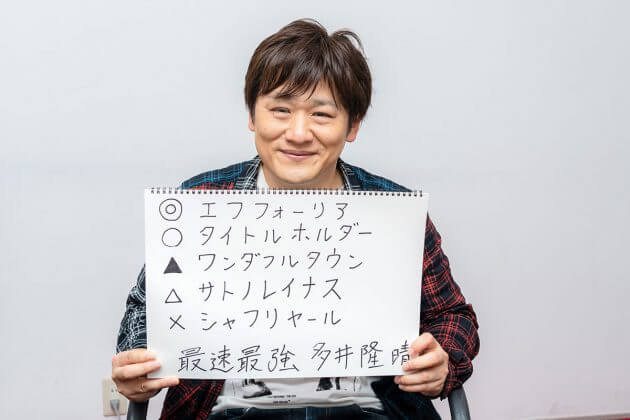 ◎ エフフォーリア
○ タイトルホルダー
▲ ワンダフルタウン
△ サトノレイナス
× シャフリヤール
最速最強 多井隆晴